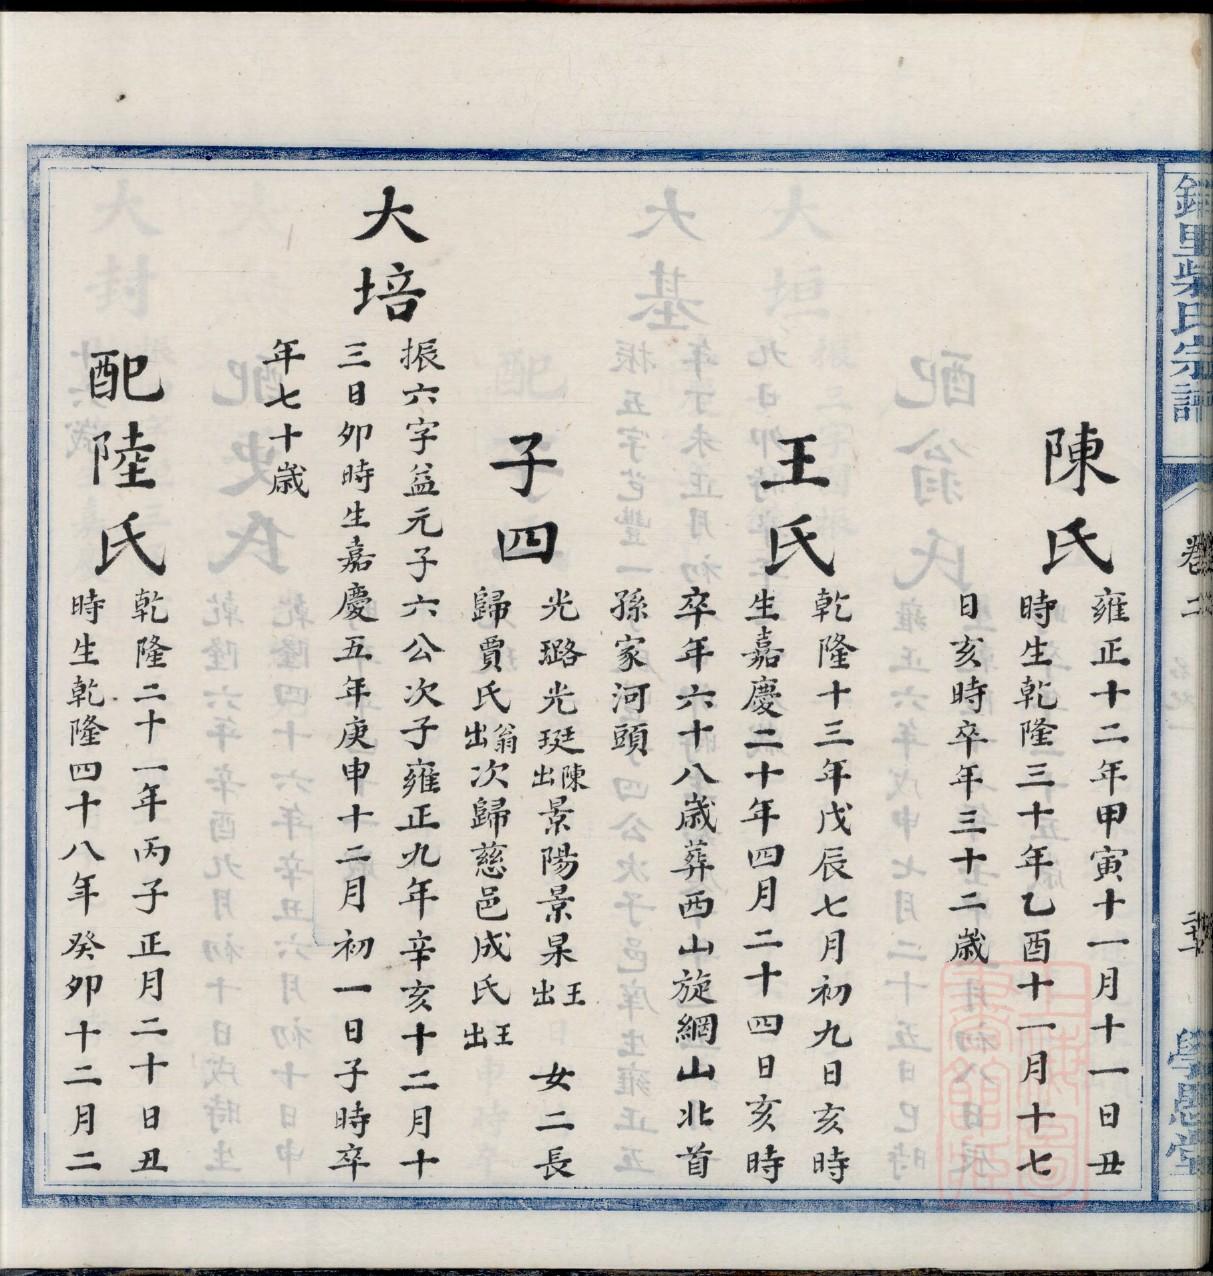 里柴氏宗譜
卷二
學愚堂
陳氏
雍正十二年甲寅十一月十一日丑
時生乾隆三十年乙酉十一月十七
日亥時卒年三十二歲
王氏
乾隆十三年戊辰七月初九日亥時
生嘉慶二十年四月二十四日亥時
卒年六十八歲葬西山旋網山北首
孫家河頭
子四
光璐光珽陳出景陽景杲王出 女二長
歸賈氏翁出次歸慈邑成氏王出
大培
振六字益元子六公次子雍正九年辛亥十二月十
三日卯時生嘉慶五年庚申十二月初一日子時卒
年七十歲
配陸氏
乾隆二十一年丙子正月二十日丑
時生乾隆四十八年癸卯十二月二